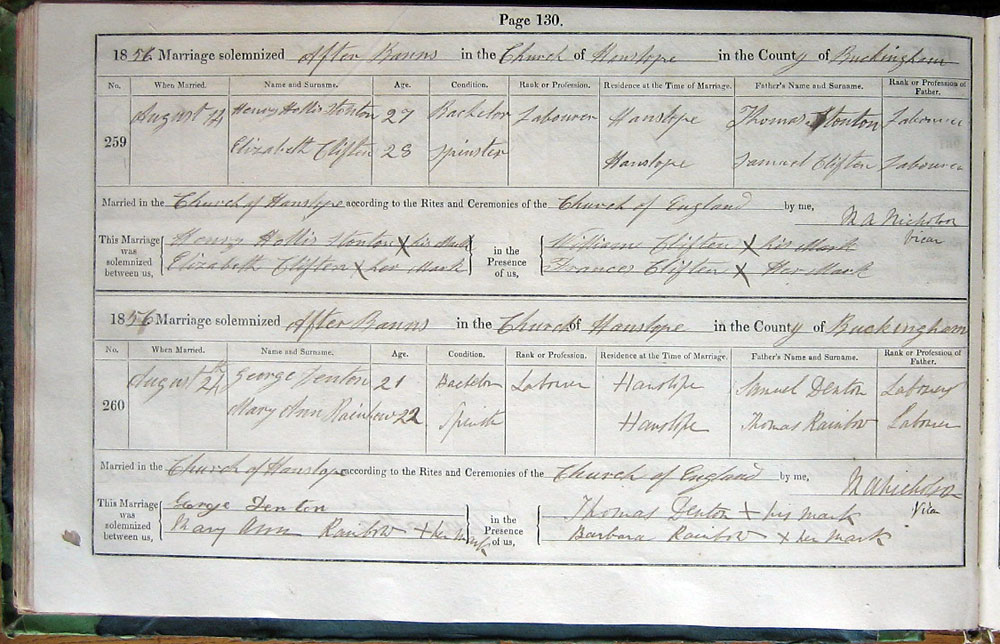 Page 130.
1856 Marriage solemnized After Banns in the Church of Hanslope in the County of Buckingham
No. When Married. Name and Surname. Age. Condition. Rank or Profession. Residence at the Time of Marriage. Father's Name and Surname. Rank or Profession of Father.
259 August Henry Hollis Stonton 27 Bachelor Labourer Hanslope Thomas Stonton Labourer
Elizabeth Clifton 28 Spinster Hanslope Samuel Clifton Labourer
Married in the Church of Hanslope according to the Rites and Ceremonies of the Church of England by me,
M A Nicholson
Vicar
This Marriage was solemnized between us, Henry Hollis Stonton X his Mark in the Presence of us, William Clifton X his Mark
Elizabeth Clifton X her Mark Frances Clifton X Her Mark
1856 Marriage solemnized After Banns in the Church of Hanslope in the County of Buckingham
No. When Married. Name and Surname. Age. Condition. Rank or Profession. Residence at the Time of Marriage. Father's Name and Surname. Rank or Profession of Father.
260 August 24th George Denton 21 Bachelor Labourer Hanslope Samuel Denton Labourer
Mary Ann Rainbow 22 Hanslope Thomas Rainbow Labourer
Married in the Church of Hanslope according to the Rites and Ceremonies of the Church of England by me,
M A Nicholson
Vicar
This Marriage was solemnized between us, George Denton in the Presence of us, Thomas Denton + his mark
Mary Ann Rainbow + her mark Barbara Rainbow + her mark